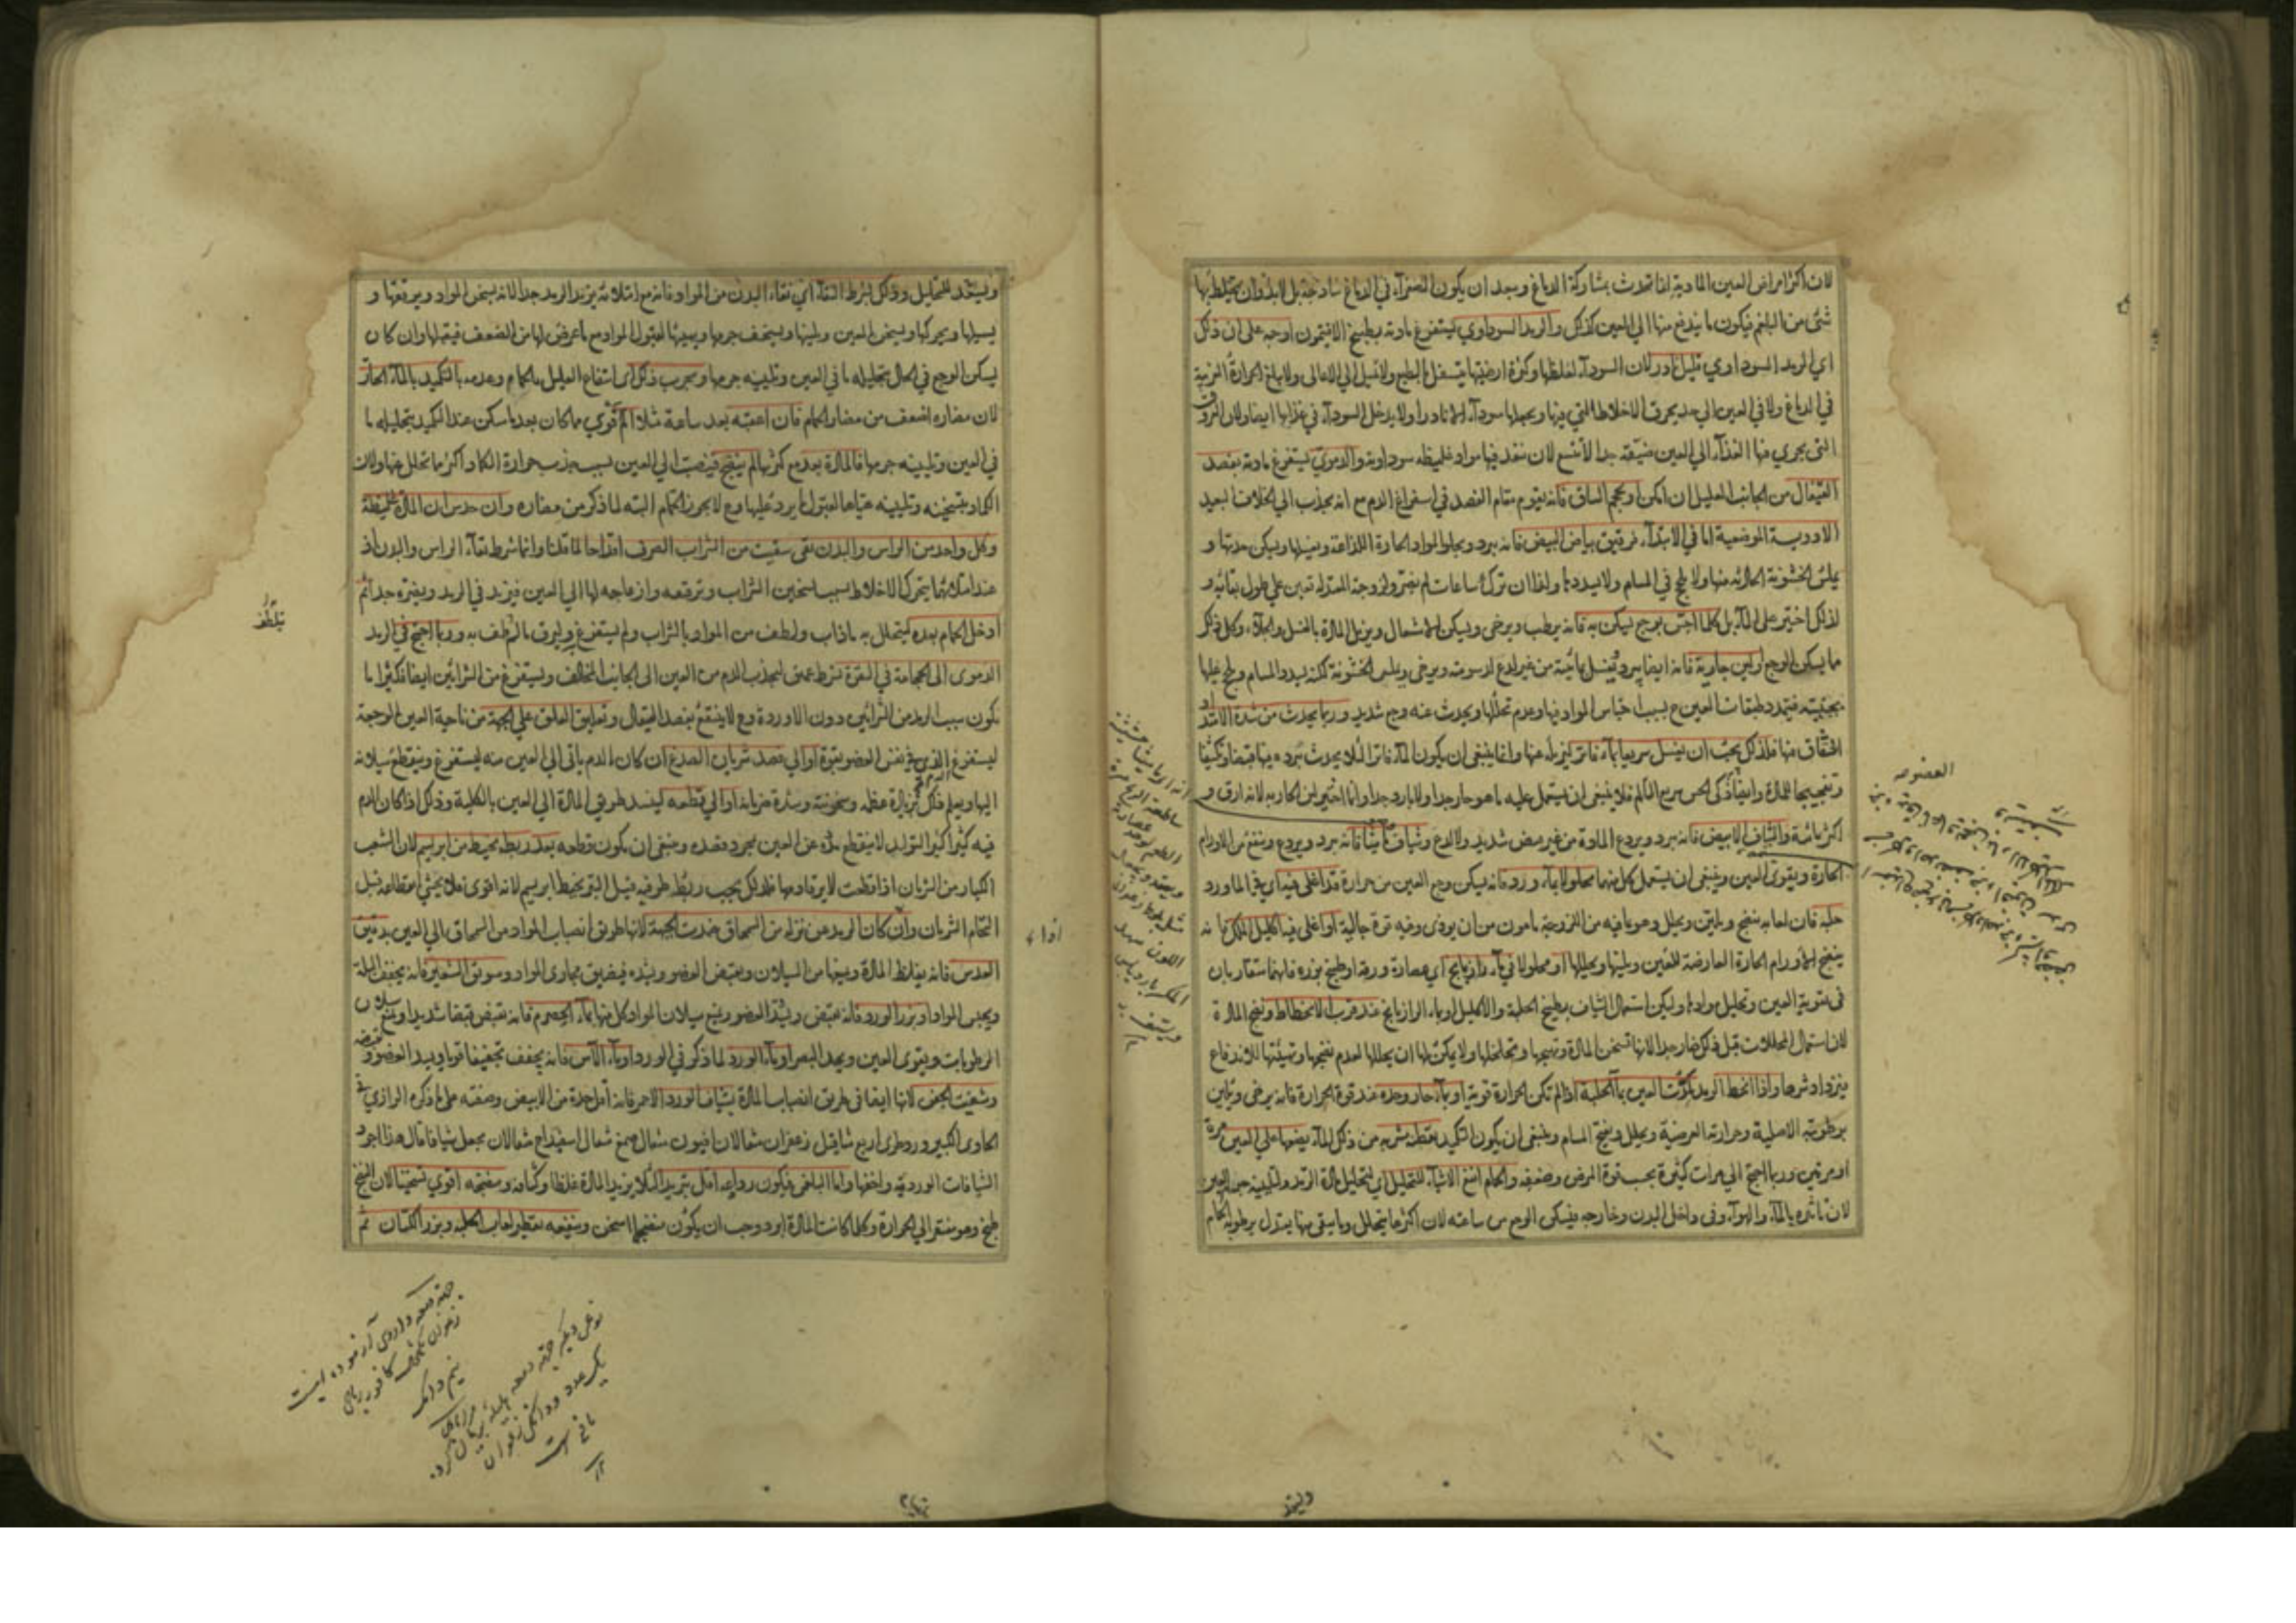 لان اكثر امراض العين المادية انما تحدث بمشاركة الدماغ وبعد ان يكون الصفراء في الدماغ ساذجة بل لابد وان يختلط بها
شئ من البلغم فيكون ما يندفع منها الى العين كذلك والرمد السوداوي يستفرغ مادته بطبيخ الافتيمون اوجه على ان ذلك
اي الرمد السوداوي قليل نادر لان السوداء لغلظها وكثرة ارضيتها يتسفل بالطبع ولا تميل الى الاعالى ولا يبلغ الحرارة الغريبة
في الدماغ ولا في العين الى حد يحرق الاخلاط التي فيها ويجعلها سوداء الا نادرا ولا يدخل السوداء في غذائها ايضا ولان العروق
التي يجري منها الغذاء الى العين ضيقة جدا لا تتسع لان تنفذ فيها مواد غليظه سوداوية والدموي يستفرغ مادته بفصد
القيفال من الجانب العليل ان امكن او حجم الساق فانه يقوم مقام الفصد في استفراغ الدم مع انه يجذب الى الخلاف البعيد
الادوية الموضعية اما في الابتداء فرقيق بياض البيض فانه يبرد ويجلو المواد الحارة اللذاعة ويغسلها ويسكن حدتها و
يملس الخشونة الحادثه منها ولا يلحج في المسام ولا يسددها ولهذا ان ترك ساعات لم يضر ولزوجته المعتدله تعين على طول بقائه و
لذلك اختير على الماء بل كلما احس بوجع يسكن به فانه يرطب ويرخى ويسكن الاشتعال ويزيل المادة بالغسل والجلاء وكل ذلك
مما يسكن الوجع او لبن جارية فانه ايضا يبرد ويغسل بمائيته من غير لدغ لدسومته ويرخى ويملس الخشونة لكنه يسدد المسام ويلحج عليها
بجبنيته فيتمدد طبقات العين ح بسبب احتباس المواد فيها وعدم تحللها ويحدث عنه وجع شديد وربما يحدث من شدة الامتداد
انشقاق فيها فلذلك يجب ان يغسل سريعا بماء فاتر ليزيله عنها وانما ينبغى ان يكون الماء فاترا لئلا يحدث ببرده فيها قبضا وتكثيفا
وتفجيجا للمادة وايضا ذكي الحس سريع التالم فلا ينبغى ان يستعمل عليه ما هو حار جدا ولا بارد جدا وانما اختير لبن الجارية لانه ارق و
اكثر مائية والشياف الابيض فانه يبرد ويردع المادة من غير مضض شديد ولا لدع وشياف مامیثا فانه يبرد ويردع وينفع من الاورام
الحارة ويقوى العين وينبغى ان يستعمل كل منهما محلولا بماء ورد فانه يسكن وجع العين من حرارة قد اغلى فيه اي في الماورد
حلبة فان لعابه ينضج ويلين ويحلل وهو بما فيه من اللزوجة مامون من ان يوذى وفيه قوة جالية او اغلى فيه اكليل الملك فانه
ينضج الاورام الحارة العارضة للعين ويلينها ويحللها او محلولا في ماء رازيانج اي عصارة ورقه او طبيخ بزره فانهما متقاربان
فى تقوية العين وتحليل موادها وليكن استعمال الشياف بطبيخ الحلبة والاكليل او بماء الرازيانج عند قرب الانحطاط ونضج المادة
لان استعمال المحللات قبل ذلك ضار جدا لانها تسخن المادة وتهيجها وتخلخلها ولا يمكن لها ان يحللها لعدم نضجها وتهيئتها للاندفاع
فيزداد شرها واذا انحط الرمد كمدت العين بماء الحلبة اذا لم تكن الحرارة قوية او بماء حار وحده عند قوة الحرارة فانه يرخى ويلين
برطوبته الاصلية وحرارته العرضية ويحلل ويفتح المسام وينبغى ان يكون التكميد بقطنة مشربة من ذلك الماء يضعها على العين مرة
او مرتين وربما احتيج الى مرات كثيرة بحسب قوة المرض وضعفه والحمام انفع الاشياء للتحليل اي لتحليل مادة الرمد ولتليينه جرم العين
لان تاثيره بالماء والهواء وفى داخل البدن وخارجه فيسكن الوجع من ساعته لان اكثر ما يتحلل وما يبقى منها يعتدل برطوبة الحمام
العضو
وليعد
ويستعد للتحليل وذلك بشرط النقاء اي نقاء البدن من المواد فانه مع امتلائه يزيد الرمد جدا لانه يسخن المواد ويرققها و
يسيلها ويحركها ويسخن العين ويلينها ويسخف جرمها ويهيئها لقبول المواد مع ما عرض لها من الضعف فيقبلها وان كان
يسكن الوجع في الحال بتحليله ما في العين وتليينه جرمها ويجرب ذلك اي انتفاع العليل بالحمام وعدمه بالتكميد بالماء الحار
لان مضاره اضعف من مضار الحمام فان اعقبه بعد ساعة مثلا الم قوي مما كان بعد ما سكن عند التكميد بتحليله ما
في العين وتليينه جرمها فالمادة بعد مع كثرتها لم ينضج فينصب الى العين بسبب جذب حرارة الكماد اكثر مما تحلل عنها ولان
الكماد بتسخينه وتليينه هياها لقبول ما يرد عليها وح لا يجوز الحمام البته لما ذكر من مضاره وان حدس ان المادة غليظة
وكل واحد من الراس والبدن نقى سقيت من الشراب الصرف اقداحا لما قلنا وانما شرط نقاء الراس والبدن اذ
عند امتلائهما يتحرك الاخلاط بسبب تسخين الشراب وترقيقه وازعاجه لها الى العين فيزيد في الرمد ويضره جدا ثم
ادخل الحمام بعده ليتحلل به ما ذاب ولطف من المواد بالشراب ولم يستفرغ وليرق ما لم يلطف به وربما احتيج في الرمد
الدموى الى الحجامة في النقرة بشرط عميق ليجذب الدم من العين الى الجانب المخالف ويستفرغ من الشرائين ايضا فكثيرا ما
يكون سبب الرمد من الشرائين دون الاوردة وح لا ينتفع بفصد القيفال وتعليق العلق على الجبهة من ناحية العين الوجعة
ليستفرغ الدم الذي في نفس العضو بقوة او الى فصد شريان الصدغ ان كان الدم ياتى الى العين منه ليستفرغ وينقطع سيلانه
اليها ويعلم ذلك بزيادة عظمه وسخونته وشدة ضربانه او الى قطعه ليسد طريق المادة الى العين بالكلية وذلك اذا كان الدم
فيه كثيرا كثير التولد لا ينقطع مدده عن العين بمجرد فصده وينبغى ان يكون قطعه بعد ربطه بخيط من ابريسم لان الشعب
الكبار من الشريان اذا قطعت لا يرقا دمها فلذلك يجب ربط طرفيه قبل البتر بخيط ابريسم لانه اقوى فلا يخشى انقطاعه قبل
التحام الشريان وان كان الرمد من نزلة من السمحاق ضمدت الجبهة لانها طريق انصباب المواد من السمحاق الى العين بدقيق
العدس فانه يغلظ المادة ويمنعها من السيلان ويقبض العضو ويشده فيضيق مجارى المواد وسويق الشعير فانه يجفف البلة
ويحبس المواد او بزر الورد فانه يقبض ويشد العضو ويمنع سيلان المواد كل منها بماء الحصرم فانه يقبض قبضا شديدا ويمنع سيلان
الرطوبات ويقوى العين ويحد البصر او بماء الورد لما ذكر في الورد او بماء الآس فانه يجفف تجفيفا قويا ويبرد العضو ويقبضه
وشفيت الجفن لانها ايضا في طريق انصباب المادة بشياف الورد الاحمر فانه اقل حدة من الابيض وصفته على ما ذكره الرازي في
الحاوى الكبير ورد طرى اربع مثاقيل زعفران مثقالان افيون مثقال صمغ مثقال اسفيداج مثقالان يجعل شيافا قال هذا اجود
الشيافات الوردية واخفها واما البلغمى فيكون روادعه اقل تبريدا لئلا يزيد المادة غلظا وكثافة ومنضجه اقوي تسخينا لان النضج
طبخ وهو مفتقر الى الحرارة وكلما كانت المادة ابرد وجب ان يكون منضجها اسخن وينفعه تقطير لعاب الحلبة وبزر الكتان ثم
يتلطف
جهة معه داروى آزموده اينست
زعفران كافور رباحى
نيم دانك
نوعى ديگر جهة دمعه هليله بريان كرده
يك عدد ودانگى زعفران
نافع است